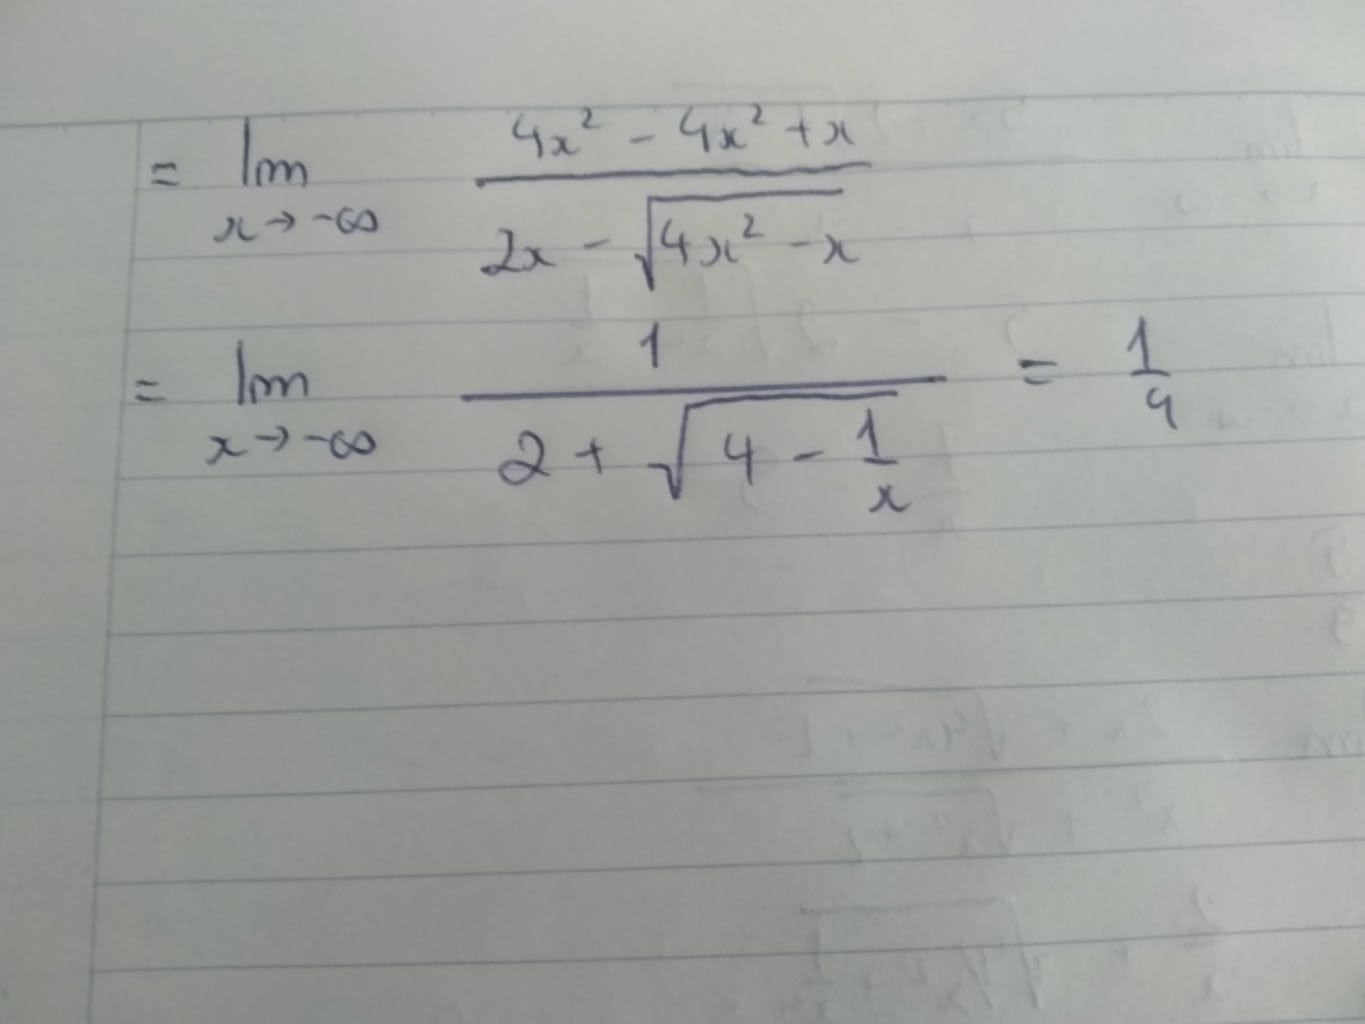 = lim x→-∞ (4x² - 4x² + x) / (2x - √(4x² - x))
= lim x→-∞ 1 / (2 + √(4 - 1/x)) = 1/4